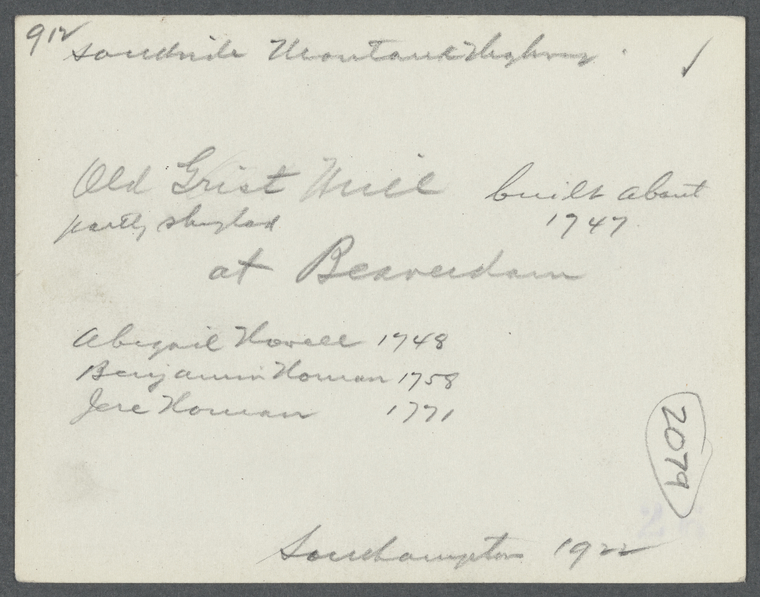 912
southside Montauk Highway.
Old Grist Mill built about
partly shingled 1747
at Beaverdam
Abigail Howell 1748
Benjamin Homan 1758
Jere Homan 1771
2079
Southampton 1922